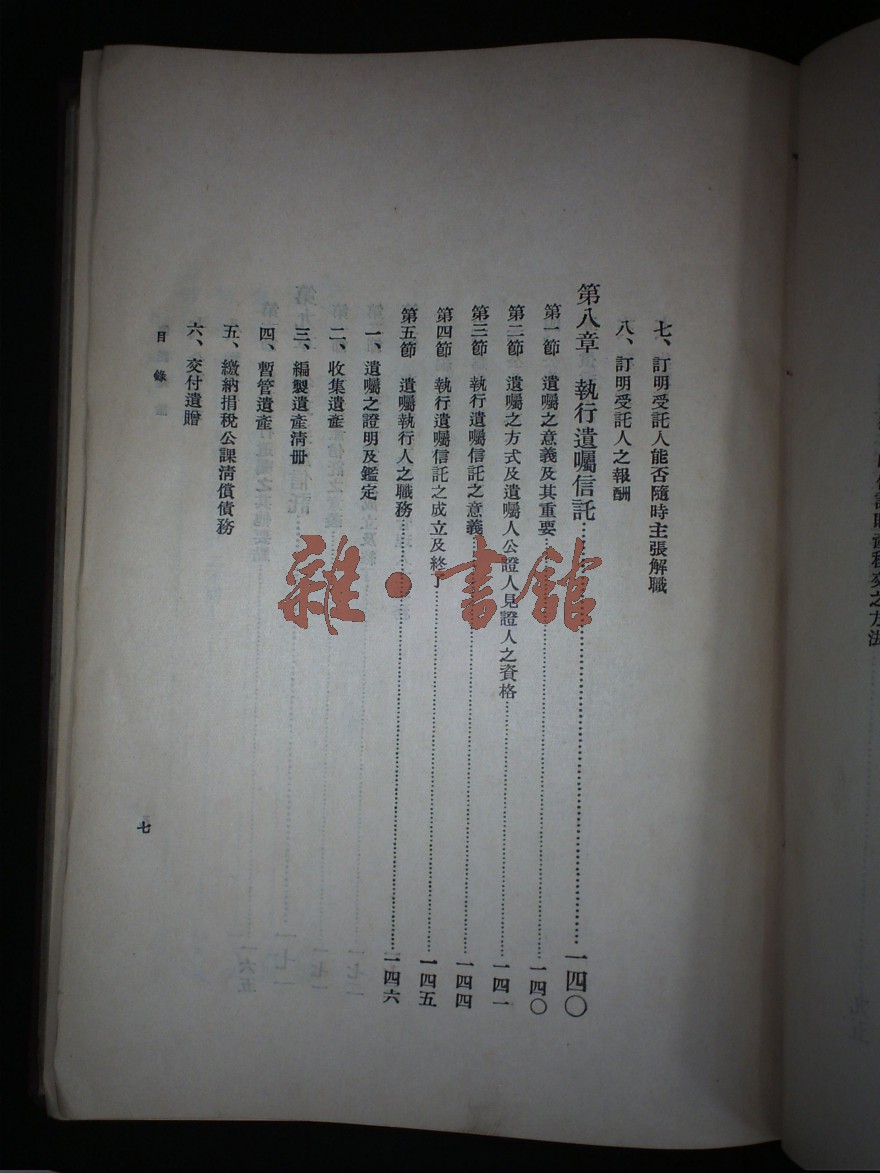 七、訂明受託人能否隨時主張解職
八、訂明受託人之報酬
第八章 執行遺囑信託⋯⋯一四〇
第一節 遺囑之意義及其重要⋯⋯一四〇
第二節 遺囑之方式及遺囑人公證人見證人之資格⋯⋯一四一
第三節 執行遺囑信託之意義⋯⋯一四四
第四節 執行遺囑信託之成立及終了⋯⋯一四五
第五節 遺囑執行人之職務⋯⋯一四六
一、遺囑之證明及鑑定
二、收集遺產
三、編製遺產清册
四、暫管遺產
五、繳納捐稅公課清償債務
六、交付遺贈
目錄
七
雜·書館